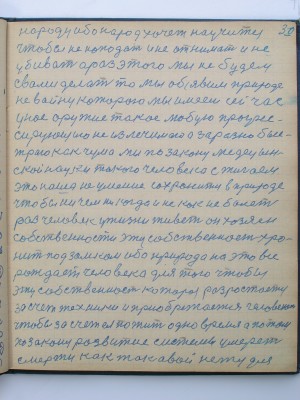 народу ибо народ хочет научиту
чтобы не нападат и не отнимат и не
убиват а раз этого мы не будем
своли делат то мы объявим природе
не вайну которою мы имеем сейчас
иное оружие такое любую прогрес-
сирующию не излечимою заразно быс-
траю как чума мы по закону медецин-
ской науки такого человека сжигаем
это наша не умение сохранить в природе
чтобы ни чем никогда и не как не балет
раз человек у жизни живет он хозяин
собственности эту собственност хро-
нит под замком ибо природа на это все
рождает человека для того чтобы
эту собственност которая разростаету
за счет техники и приобретается человеком
чтобы за счет ея пожит одно время а потом
по закону развитие системы умереть
смерти как таковой нету для
30